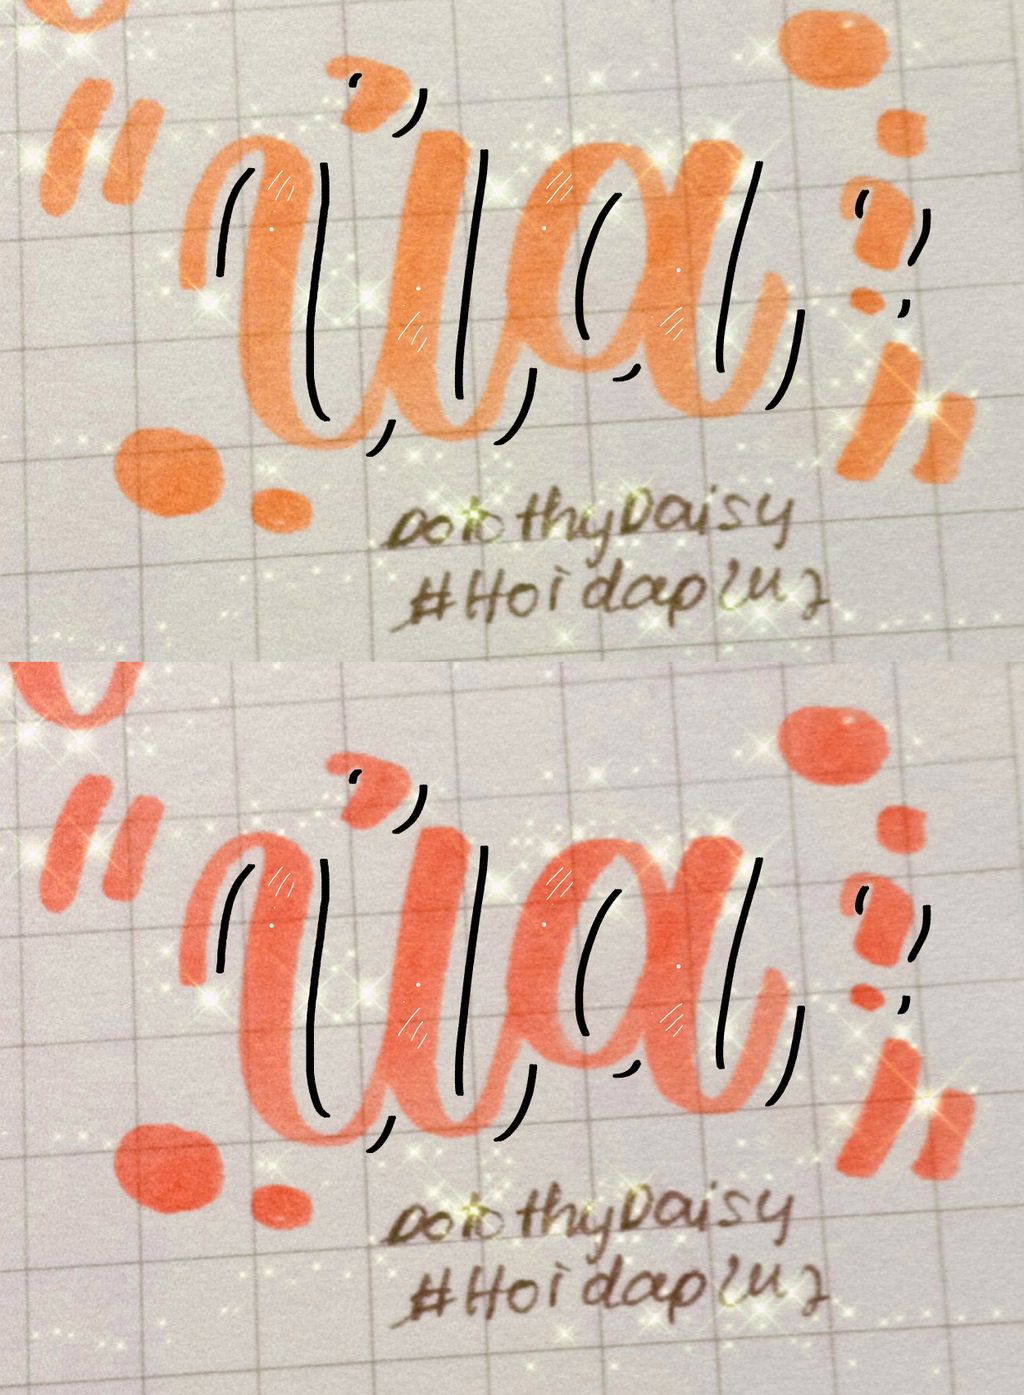 "ủa?"
DorothyDaisy
#Hoidap247
"ủa?"
DorothyDaisy
#Hoidap247